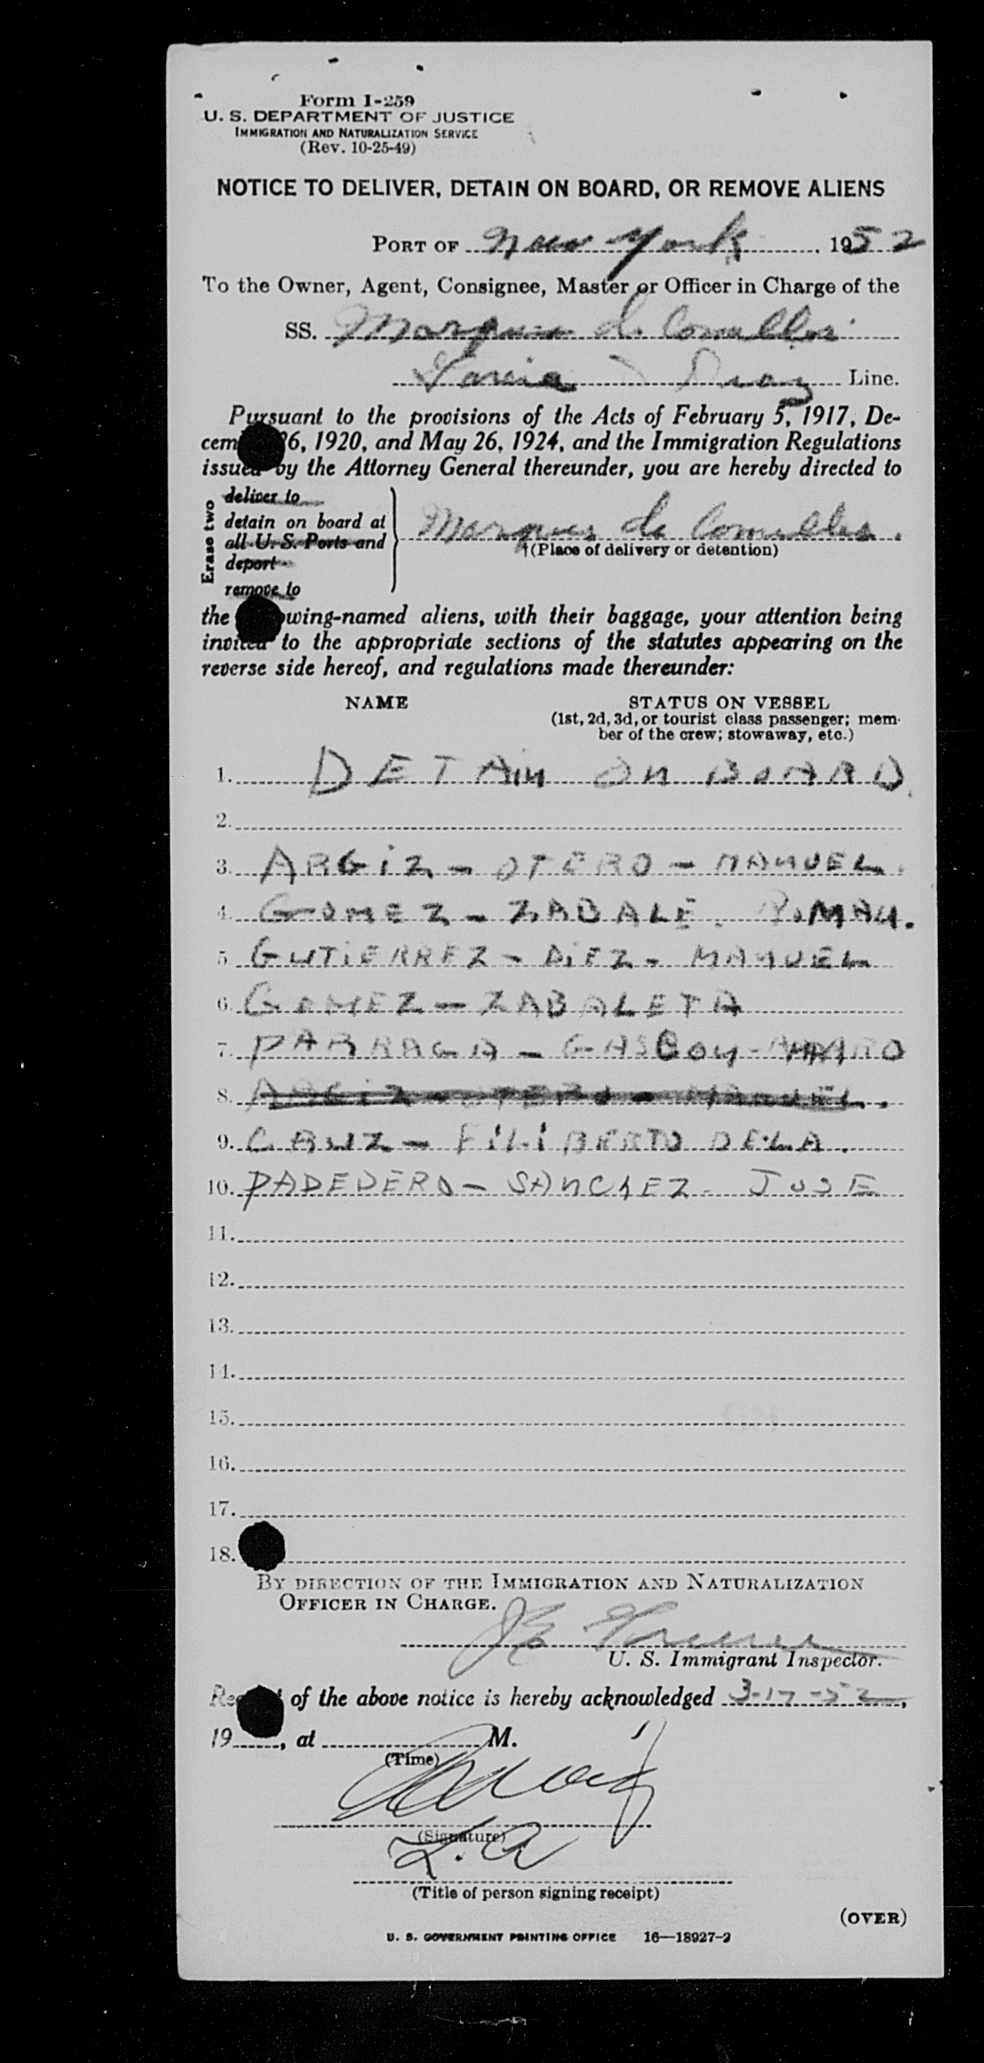 Form I-259
U. S. DEPARTMENT OF JUSTICE
IMMIGRATION AND NATURALIZATION SERVICE
(Rev. 10-25-49)
NOTICE TO DELIVER, DETAIN ON BOARD, OR REMOVE ALIENS
PORT OF New York, 1952
To the Owner, Agent, Consignee, Master or Officer in Charge of the
SS. Marques de Comillas
Garcia Diaz Line.
Pursuant to the provisions of the Acts of February 5, 1917, De-
cem 26, 1920, and May 26, 1924, and the Immigration Regulations
issued by the Attorney General thereunder, you are hereby directed to
Erase two
deliver to
detain on board at
all U. S. Ports and
deport
remove to
Marques de Comillas.
†(Place of delivery or detention)
the wing-named aliens, with their baggage, your attention being
invited to the appropriate sections of the statutes appearing on the
reverse side hereof, and regulations made thereunder:
NAME STATUS ON VESSEL
(1st, 2d, 3d, or tourist class passenger; mem-
ber of the crew; stowaway, etc.)
1. DETAIN ON BOARD
2.
3. ARGIZ - OTERO - MANUEL.
4. GOMEZ - ZABALE. ROMAN.
5. GUTIERREZ - DIEZ - MANUEL
6. GOMEZ - ZABALETA
7. PARRAGA - GASBON - AMPARO
8. ARGIZ - OTERO - MANUEL.
9. CRUZ - FILIBERTO DELA.
10. PADEDERO - SANCHEZ - JOSE
11.
12.
13.
14.
15.
16.
17.
18.
BY DIRECTION OF THE IMMIGRATION AND NATURALIZATION
OFFICER IN CHARGE.
U. S. Immigrant Inspector.
of the above notice is hereby acknowledged 3-17-52,
19, at M.
(Time)
(Signature)
(Title of person signing receipt)
(OVER)
U. S. GOVERNMENT PRINTING OFFICE 16—18927-2